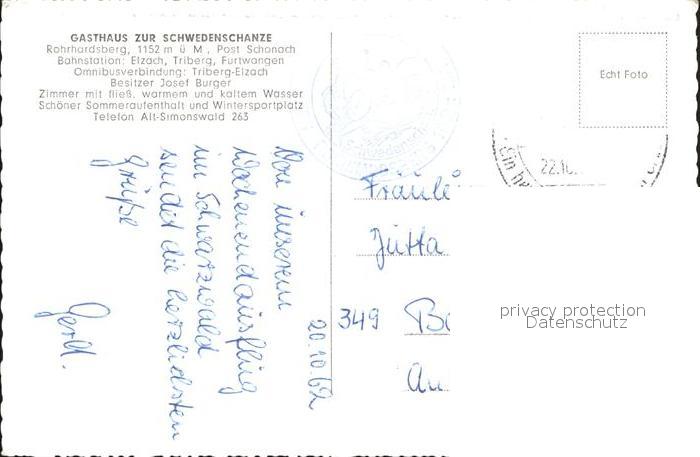 GASTHAUS ZUR SCHWEDENSCHANZE
Rohrhardsberg, 1152 m ü M, Post Schonach
Bahnstation: Elzach, Triberg, Furtwangen
Omnibusverbindung: Triberg-Elzach
Besitzer Josef Burger
Zimmer mit fließ. warmem und kaltem Wasser
Schöner Sommeraufenthalt und Wintersportplatz
Telefon Alt-Simonswald 263
Echt Foto
22.10.
20.10.62
Von unserem
Wochenendausflug
im Schwarzwald
sendet die herzlichsten
Grüße
Gerd.
Fräule
Jutta
349 Be
An
privacy protection
Datenschutz